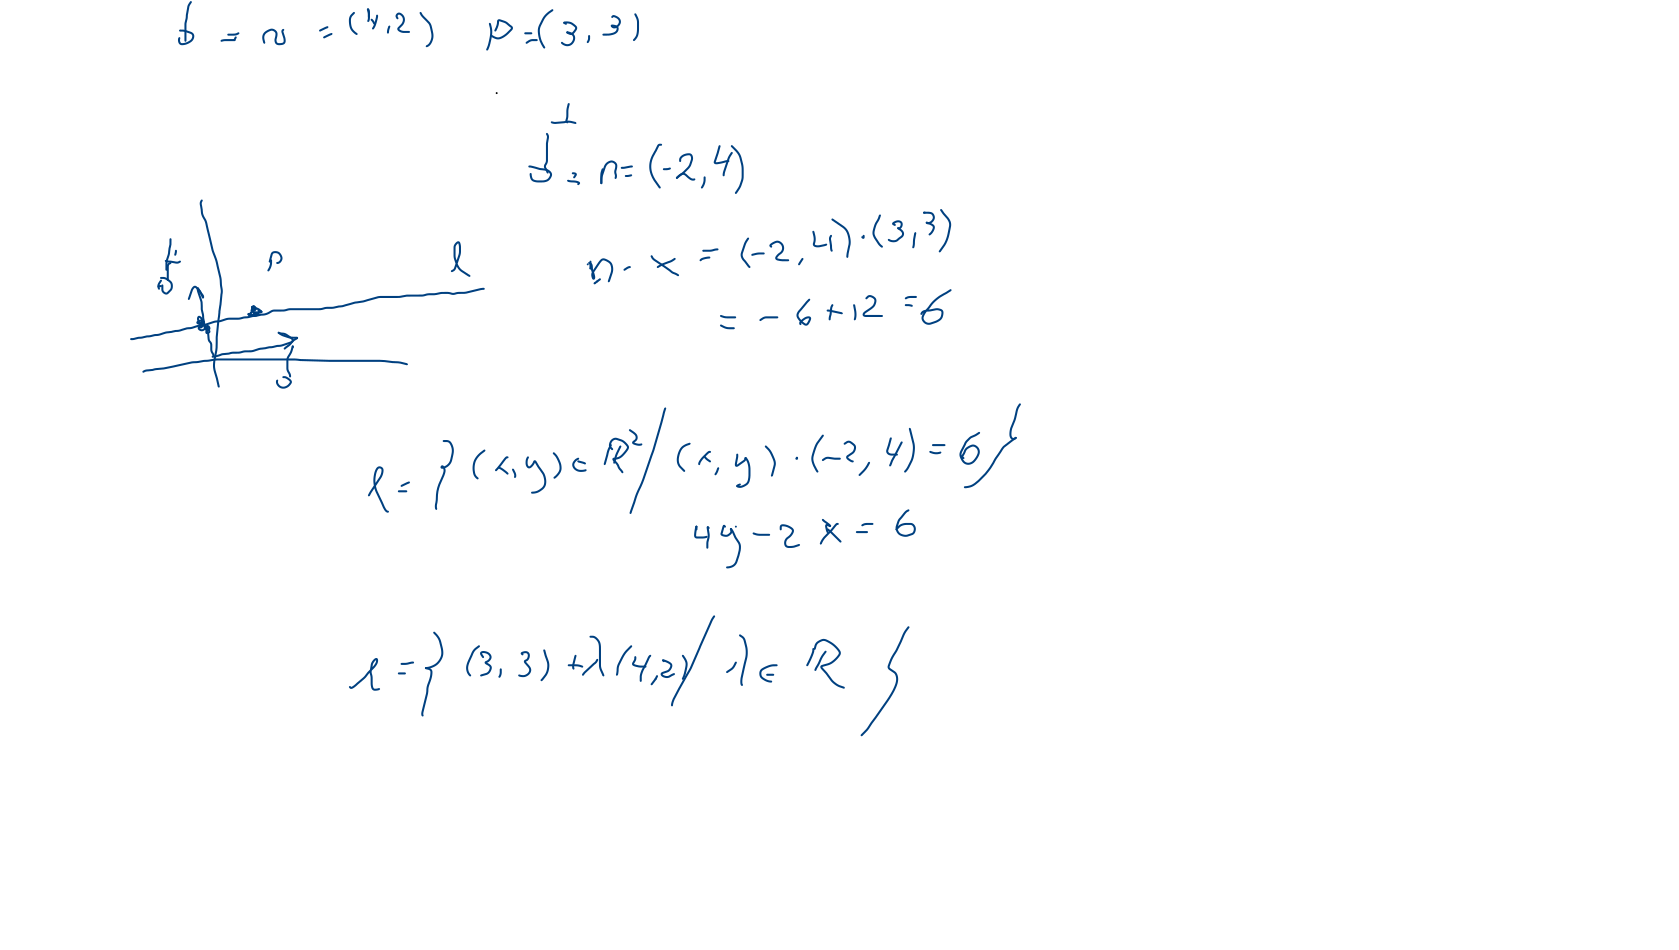 d = n = (4,2)   p = (3,3)
d^⊥ = n = (-2,4)
d^⊥   p   l
d
n · x = (-2,4) · (3,3)
= -6+12 = 6
l = { (x,y) ∈ ℝ² / (x,y) · (-2,4) = 6 }
4y - 2x = 6
l = { (3,3) + λ(4,2) / λ ∈ ℝ }